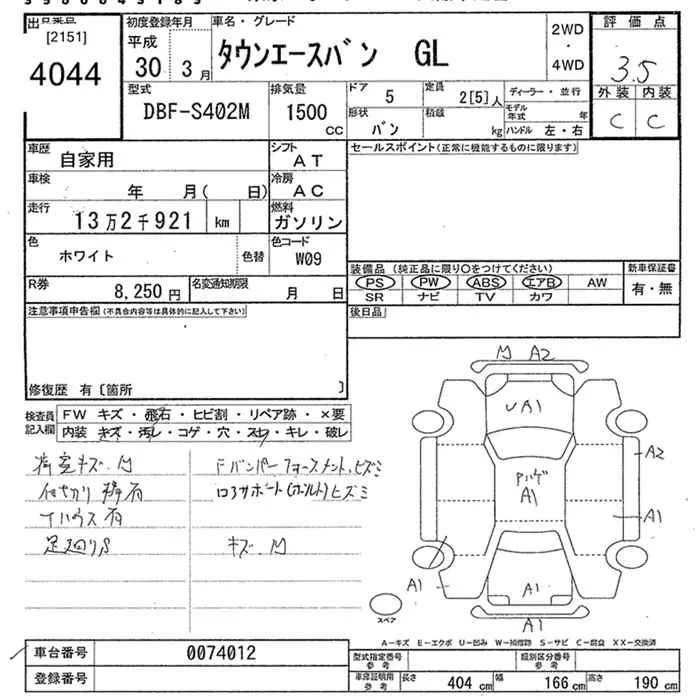 出品番号 [2151]
4044
初度登録年月
平成 30 3月
車名・グレード
タウンエースバン GL
2WD・4WD
評価点
3.5
外装 内装
C C
型式
DBF-S402M
排気量
1500 cc
ドア 5
定員 2[5]人
形状 バン
積載 kg
ディーラー・並行
モデル年式 年
ハンドル 左・右
車歴 自家用
シフト AT
車検 年 月( 日)
冷房 AC
走行 13万2千921 km
燃料 ガソリン
色 ホワイト 色替
色コード W09
R券 8,250円
名変通知期限 月 日
セールスポイント(正常に機能するものに限ります)
装備品 (純正品に限り○をつけてください)
新車保証書
PS PW ABS エアB AW
有・無
SR ナビ TV カワ
後日品
注意事項申告欄(不具合内容等は具体的に記入して下さい)
修復歴 有 [箇所 ]
検査員記入欄
FW キズ・飛石・ヒビ割・リペア跡・×要
内装・キズ・汚レ・コゲ・穴・スレ・キレ・破レ
荷室キズ、凹
Fバンパーフォースメント、ヒズミ
ロアサポート(ボルト)ヒズミ
有
足廻りS
キズ、凹
凹 A2
A1
A2
Pハゲ
A1
A1
A1
A1
A1
スペア
A-キズ E-エクボ U-凹み W-補修跡 S-サビ C-腐食 XX-交換済
車台番号 0074012
登録番号
型式指定番号 参考
類別区分番号 参考
車庫証明用 参考
長さ 404 cm 幅 166 cm 高さ 190 cm